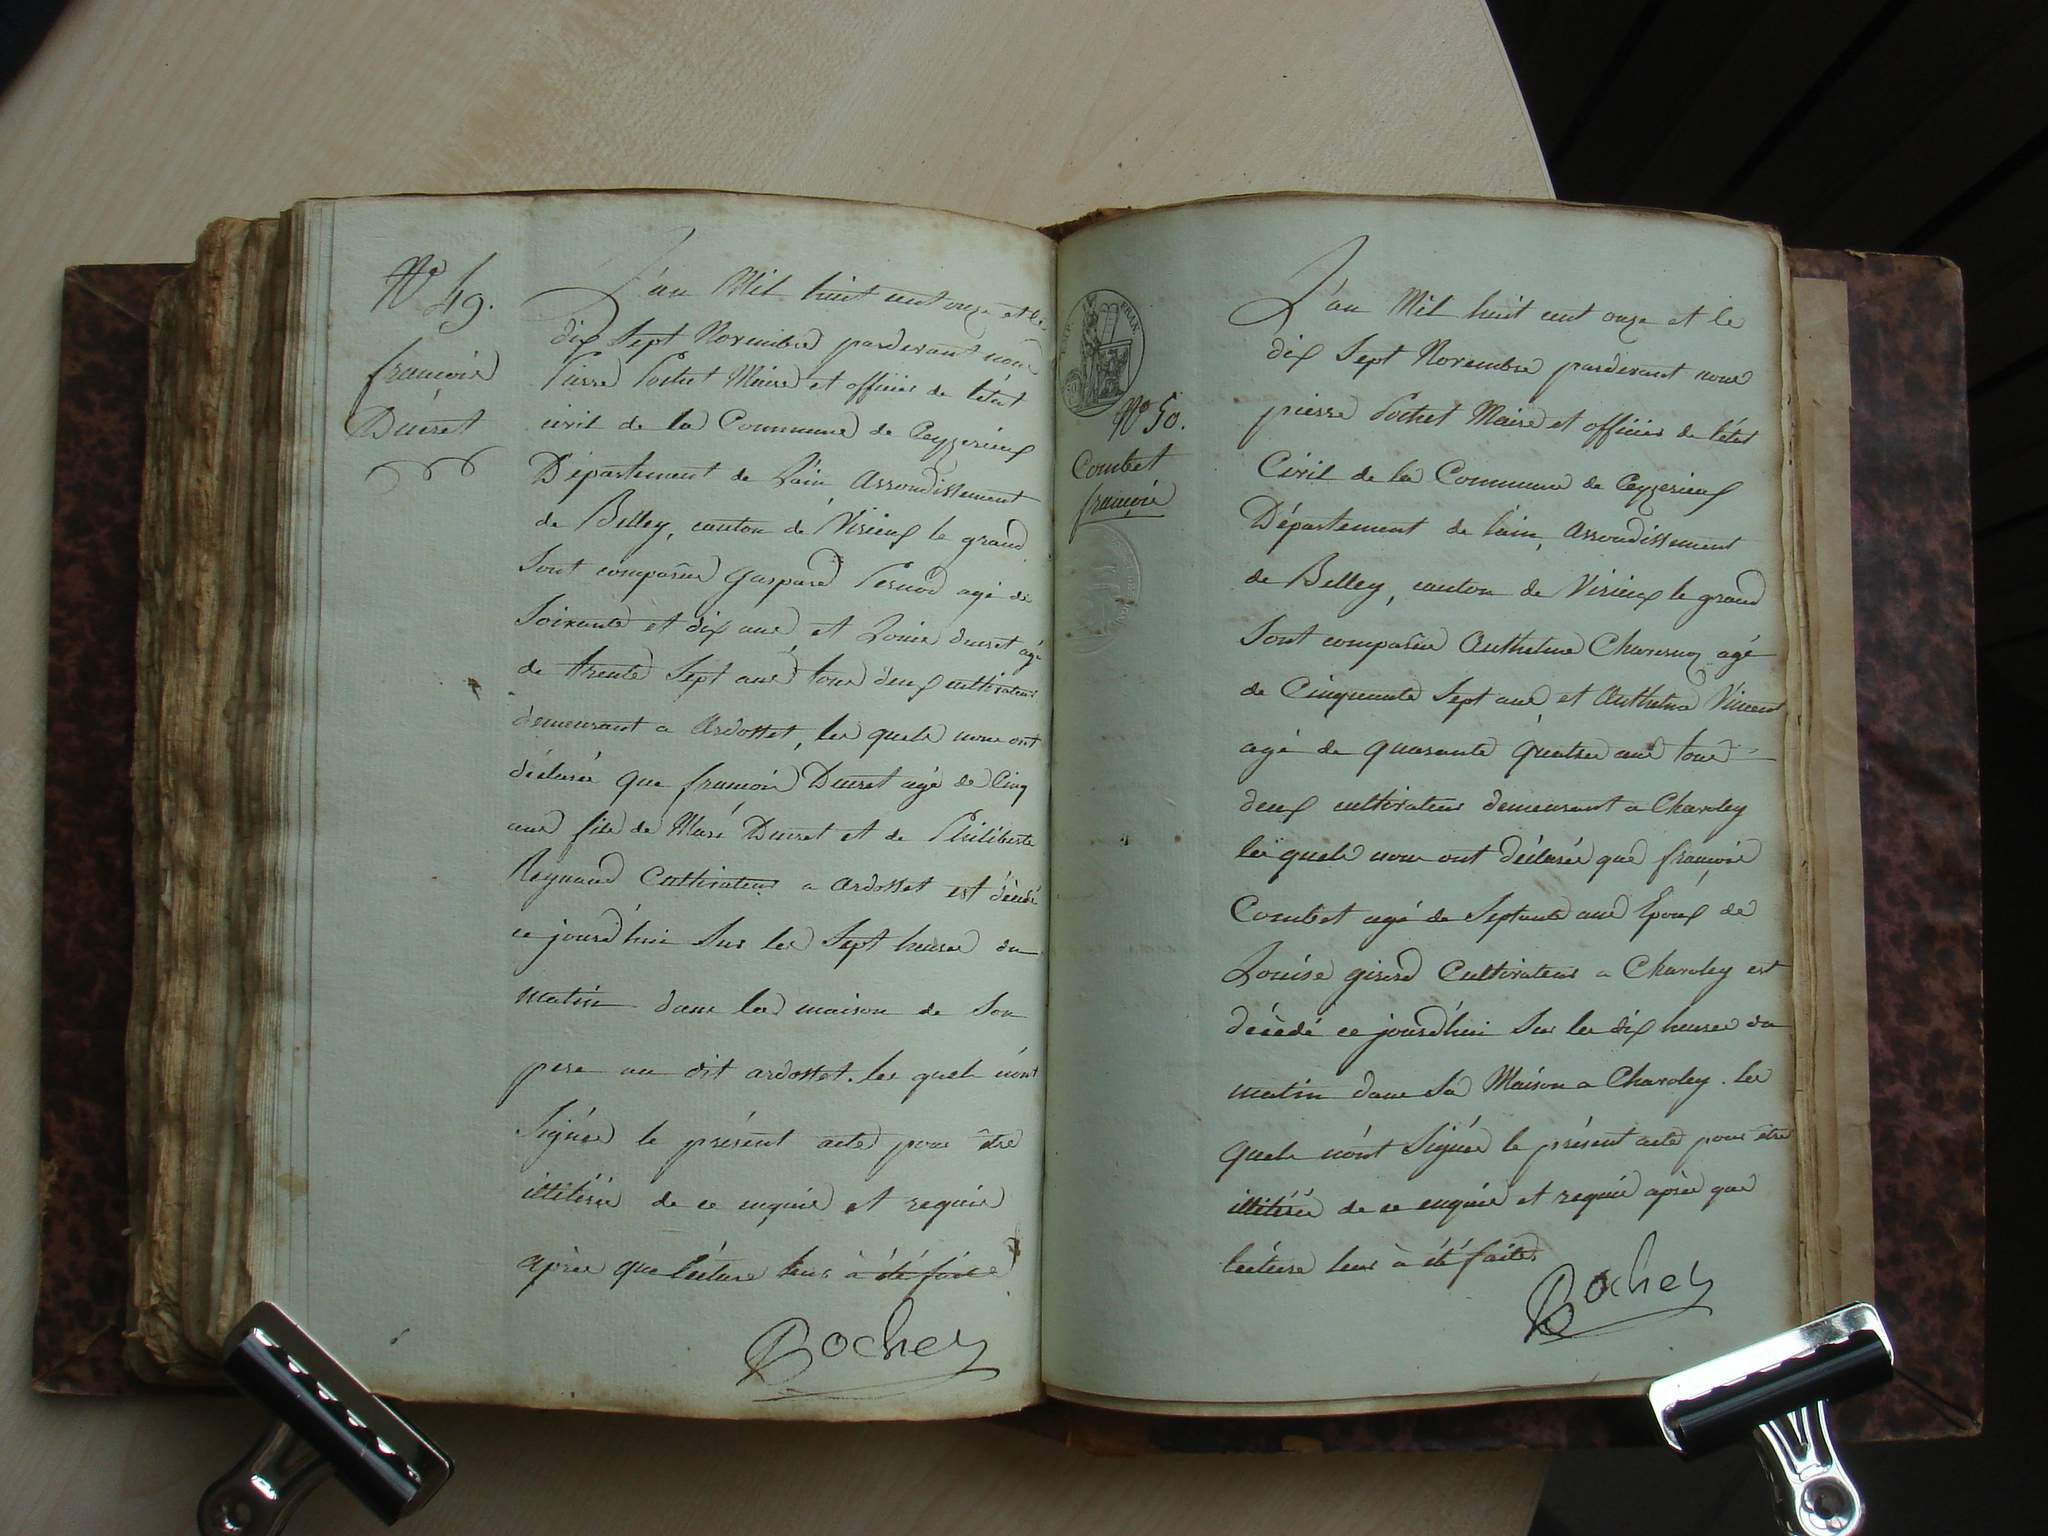 No 49.
françois
Ducret
L'an Mil huit cent onze et le
dix Sept Novembre pardevant nous
Pierre Pochet Maire et officier de l'état
civil de la Commune de Ceyzerieux
Département de L'ain, Arrondissement
de Belley, canton de Virieux le grand
Sont comparus gaspard agé de
Soixante et dix ans et Louis ducret agé
de trente Sept ans tous deux cultivateurs
demeurant a Ardosset, les quels nous ont
déclarés que françois Ducret agé de Cinq
ans fils de Ducret et de Philiberte
Reynaud Cultivateurs a ardosset est décédé
ce jourd'hui Sur les Sept heures du
matin dans la maison de Son
pere au dit ardosset. les quels n'ont
Signés le présent acte pour être
illitérés de ce enquis et requis
après que lecture leur à été faite
Pochet
EMP. FRAN.
No 50.
Combet
françois
L'an Mil huit cent onze et le
dix Sept Novembre pardevant nous
pierre Pochet Maire et officier de l'état
Civil de la Commune de Ceyzerieux
Département de l'ain, Arrondissement
de Belley, canton de Virieux le grand
Sont comparus Anthelme agé
de Cinquante Sept ans et Anthelme Vincent
agé de quarante quatre ans tous
deux cultivateurs demeurant a Charoley
les quels nous ont déclarés que françois
Combet agé de Septante ans Epoux de
Louise girerd Cultivateur a Charoley est
décédé ce jourd'hui Sur les dix heures du
matin dans Sa Maison a Charoley. les
quels n'ont Signés le présent acte pour être
illitérés de ce enquis et requis après que
lecture leur à été faite
Pochet